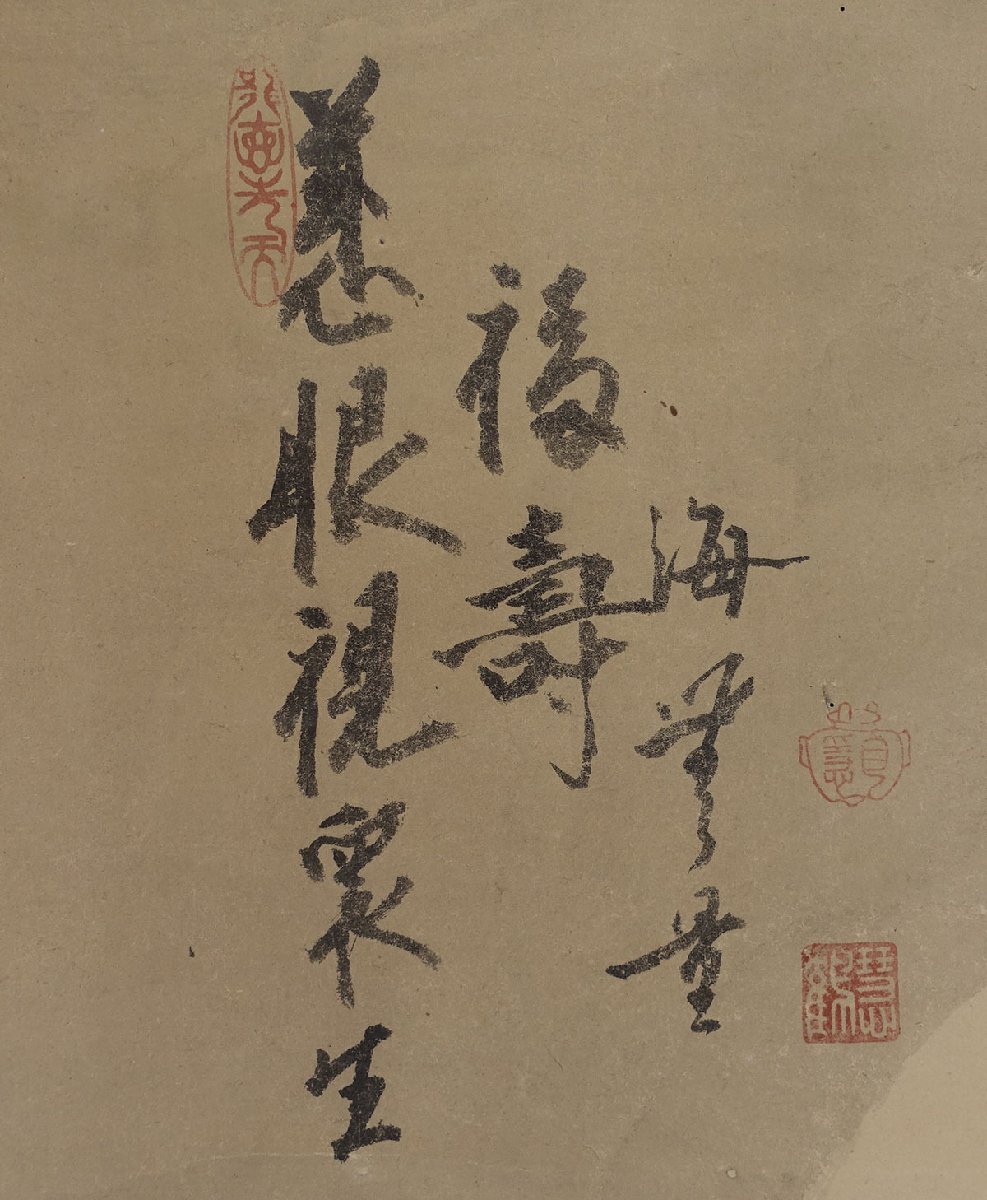 慈眼視衆生
福壽
海無量
慧鶴